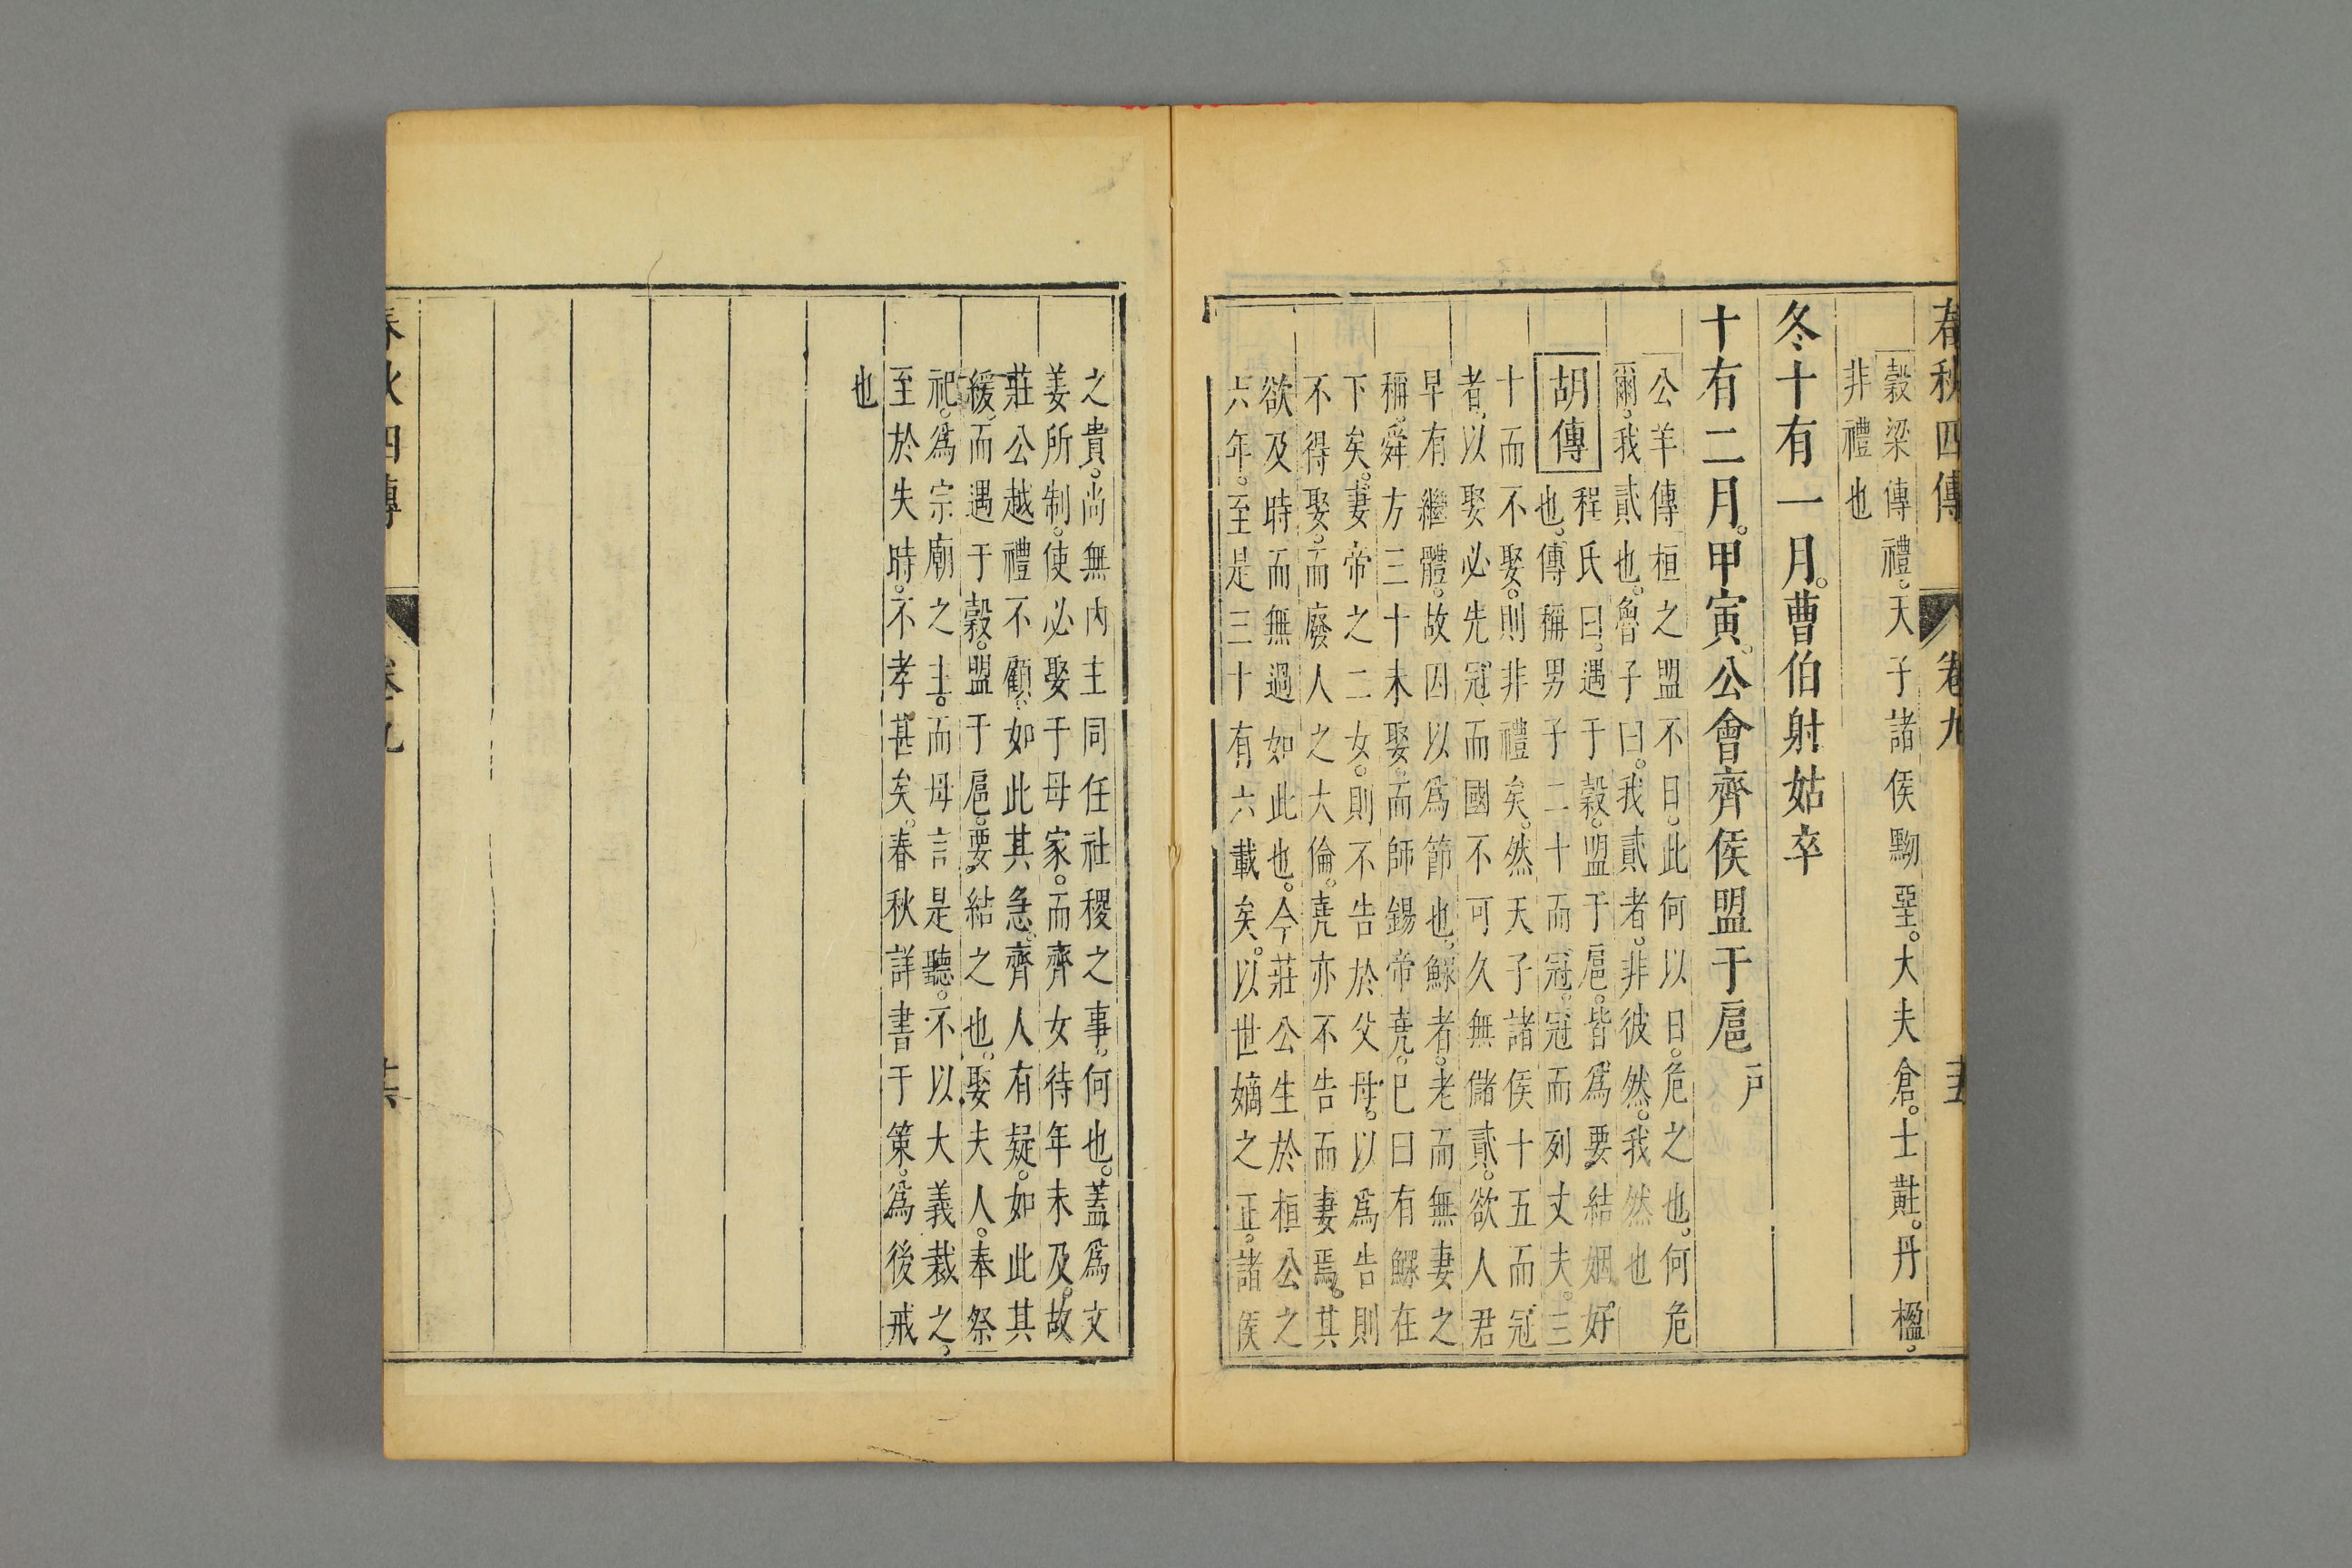 春秋四傳 卷九
穀梁傳禮。天子諸侯黝堊。大夫倉。士黈。丹楹。
非禮也
冬十有一月。曹伯射姑卒
十有二月。甲寅。公會齊侯盟于扈 戶
公羊傳桓之盟不日。此何以日。危之也。何危
爾。我貳也。魯子曰。我貳者。非彼然。我然也
胡傳
程氏曰。遇于穀。盟于扈。皆為要結姻好
也。傳稱男子二十而冠。冠而列丈夫。三
十而不娶。則非禮矣。然天子諸侯十五而冠
者。以娶必先冠。而國不可久無儲貳。欲人君
早有繼體。故因以為節也。鰥者。老而無妻之
稱。舜方三十未娶。而師錫帝堯。已曰有鰥在
下矣。妻帝之二女。則不告於父母。以為告則
不得娶。而廢人之大倫。堯亦不告而妻焉。其
欲及時而無過如此也。今莊公生於桓公之
六年。至是三十有六載矣。以世嫡之正。諸侯
之貴。尚無內主同任社稷之事。何也。蓋為文
姜所制。使必娶于母家。而齊女待年未及。故
莊公越禮不顧。如此其急。齊人有疑。如此其
緩。而遇于穀。盟于扈。要結之也。娶夫人。奉祭
祀。為宗廟之主。而母言是聽。不以大義裁之。
至於失時。不孝甚矣。春秋詳書于策。為後戒
也
春秋四傳 卷九